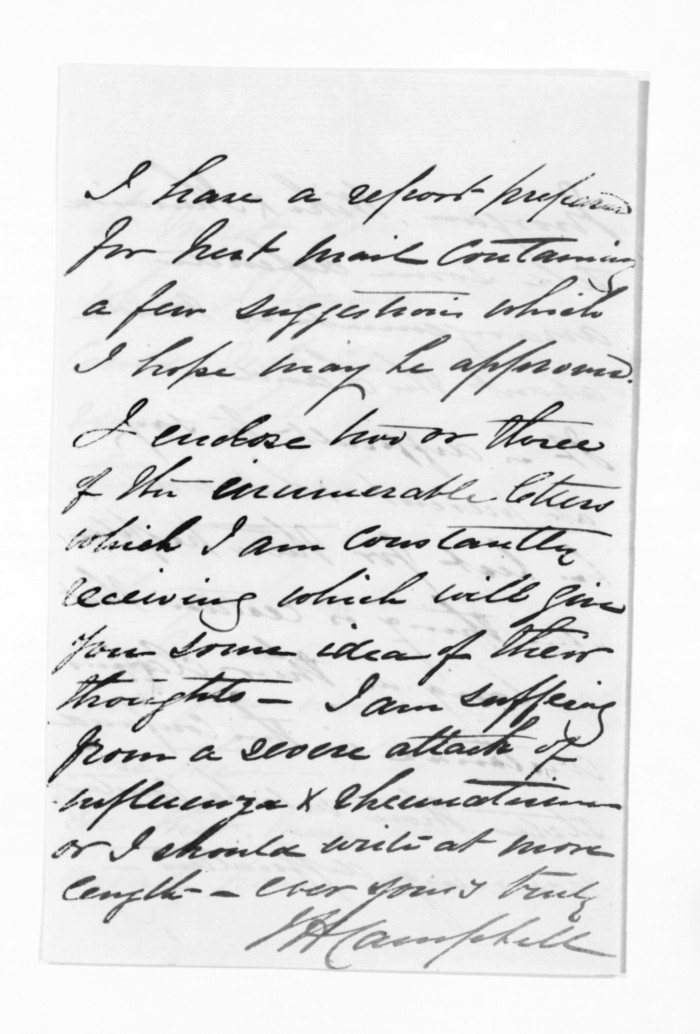 I have a report prepared
for next mail containing
a few suggestions which
I hope may be approved.
I enclose two or three
of the innumerable letters
which I am constantly
receiving which will give
you some idea of their
thoughts — I am suffering
from a severe attack of
influenza & rheumatism
or I should write at more
length — ever yours truly
J H Campbell